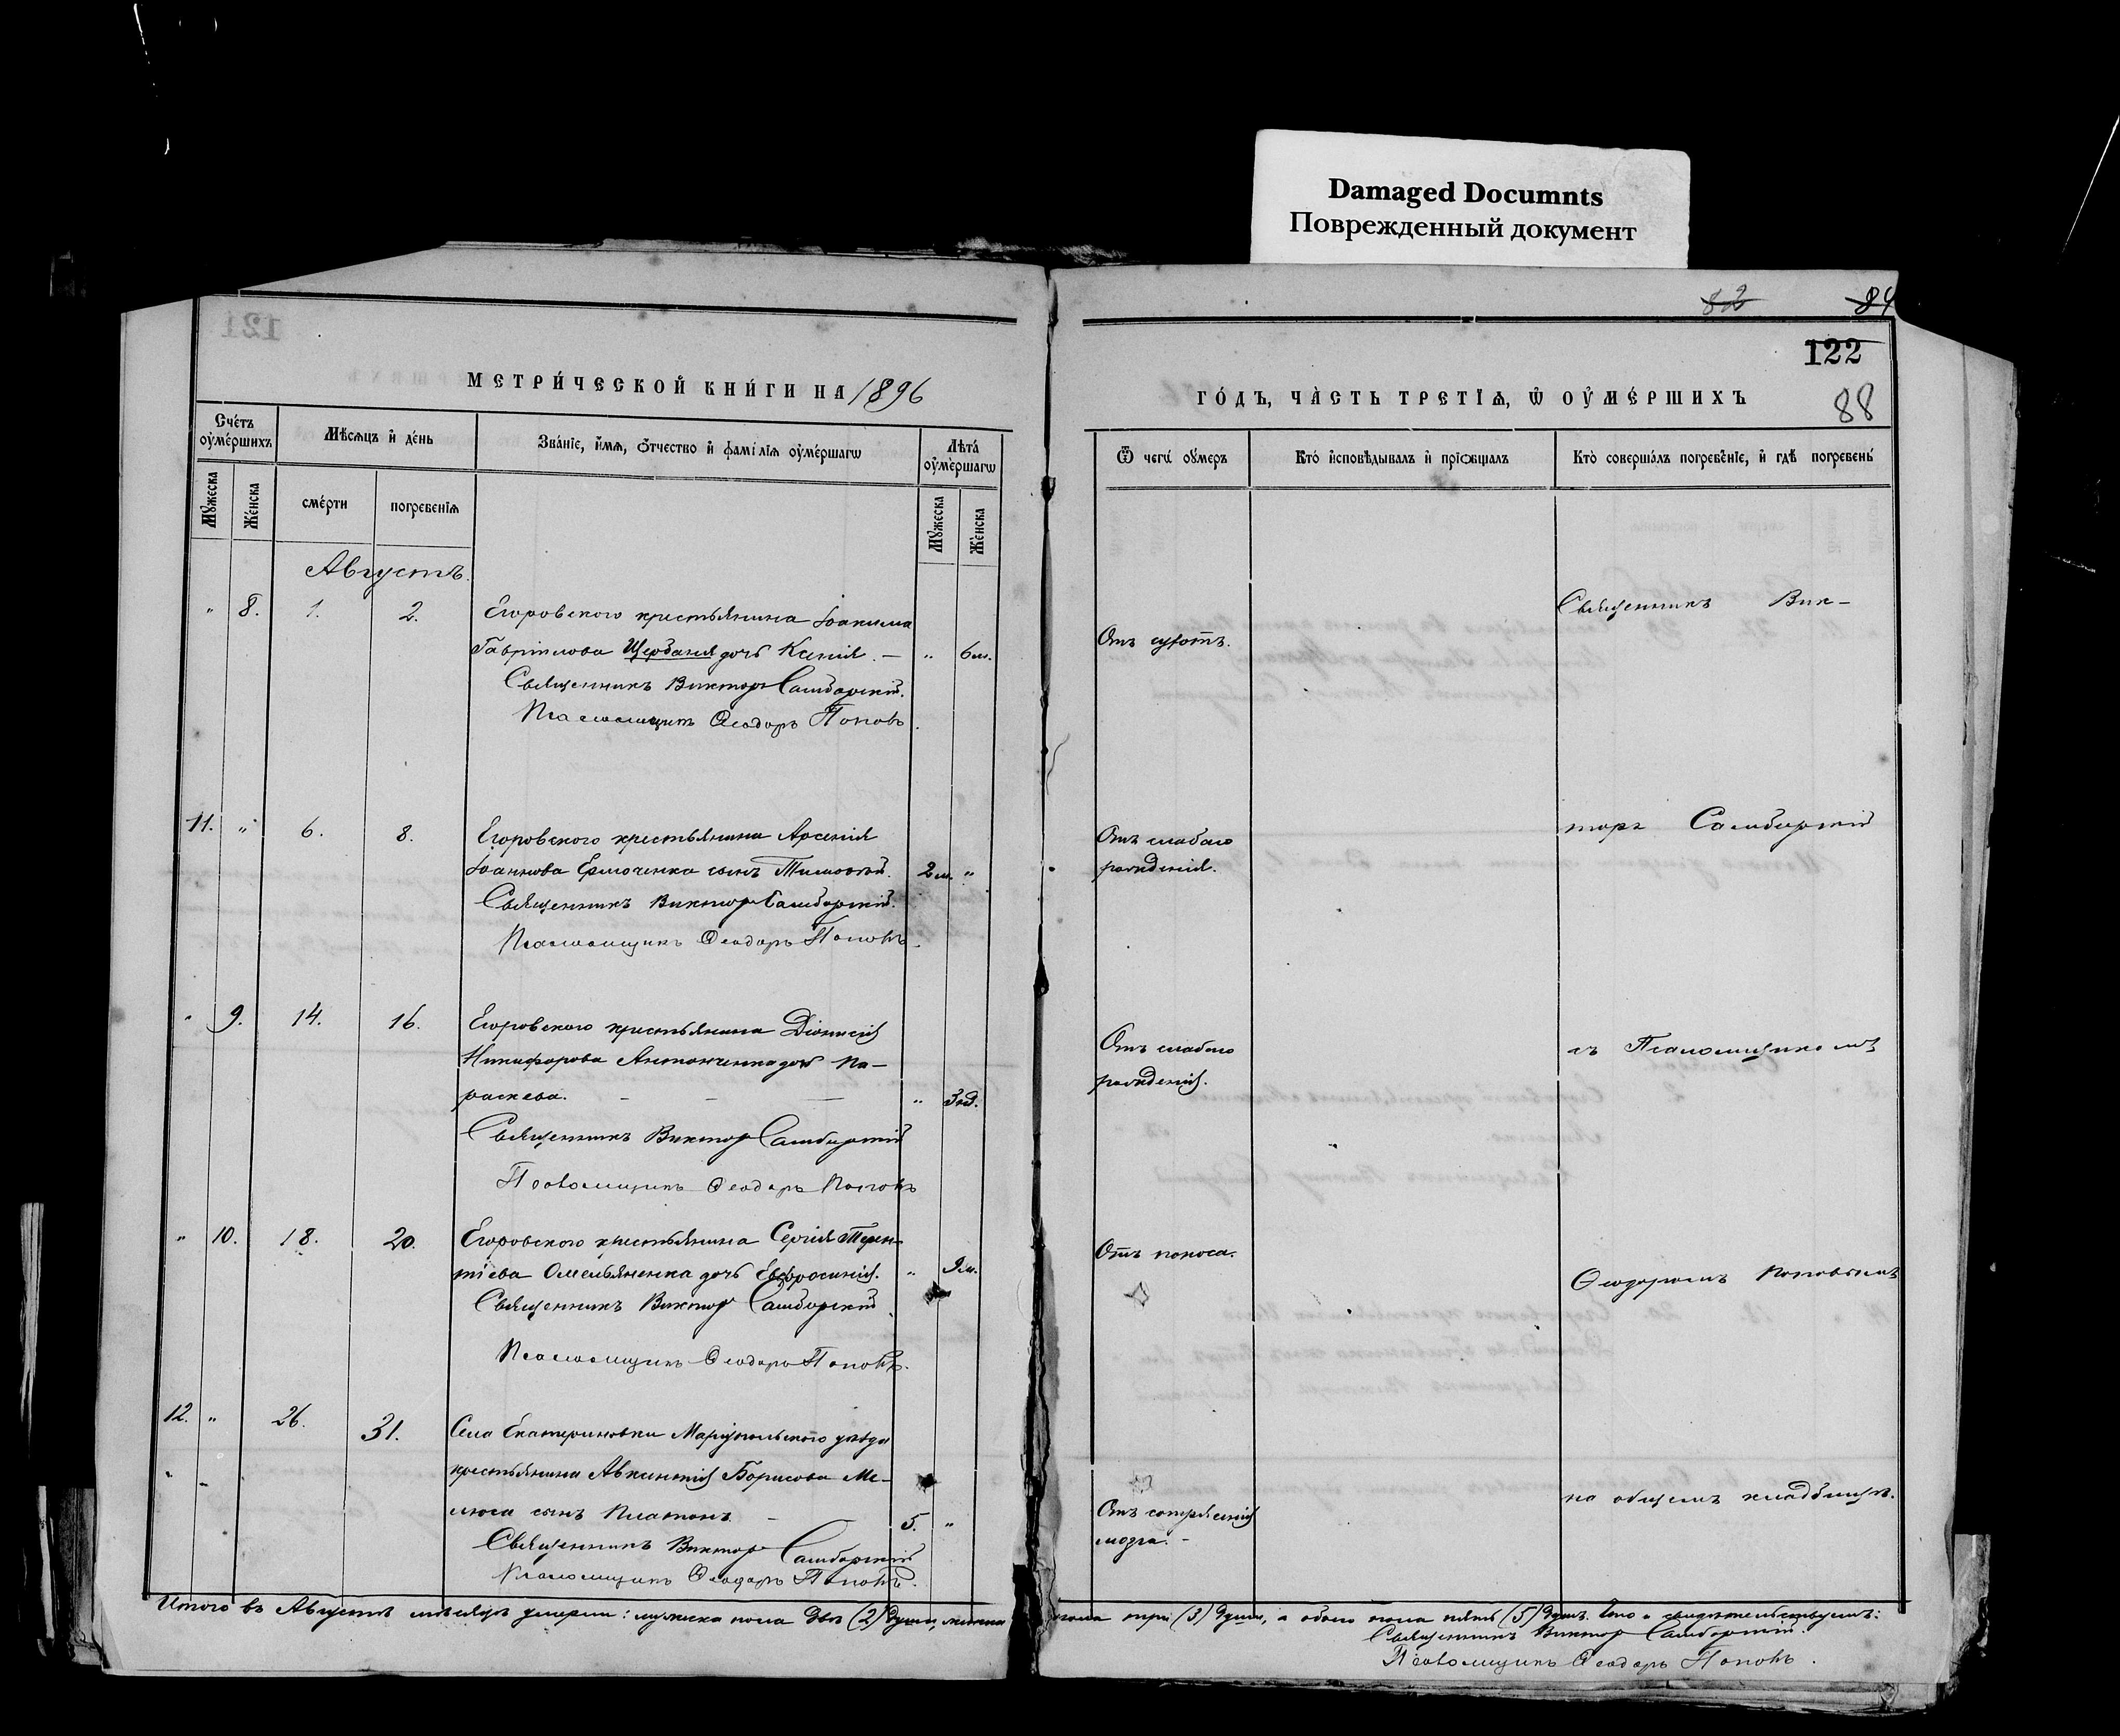 Damaged Documnts
Поврежденный документ
82
84
121
122
88
МЕТРИ́ЧЕСКОЙ КНИ́ГИ НА 1896
ГО́ДЪ, ЧА́СТЬ ТРЕТІѦ, Ѿ ОУ҆МЕ́РШИХЪ
Сче́тъ оу҆ме́ршихъ
Мѣсѧцъ и҆ де́нь
Зва́нїе, и҆́мѧ, о҆́тчество и҆ фамі́лїѧ оу҆ме́ршагѡ
Лѣта̀ оу҆ме́ршагѡ
Ѿ чегѡ̀ оу҆́меръ
Кто̀ и҆сповѣ́дывалъ и҆ прїѡбща́лъ
Кто̀ соверша́лъ погребе́нїе, и҆ гдѣ̀ погребе́нъ
Мꙋ́жеска
Же́нска
сме́рти
погребе́нїѧ
Мꙋ́жеска
Же́нска
Августъ.
" 8. 1. 2. Егоровского крестьянина Іоакима
Гавріилова Щербаня дочь Ксенія. — " 6 м.
Священникъ Викторъ Самборскій.
Псаломщикъ Ѳеодоръ Поповъ.
Отъ
Священникъ Вик-
11. " 6. 8. Егоровского крестьянина Арсенія
Іоаннова Ермоченка сынъ Тимоѳей. 2 м. "
Священникъ Викторъ Самборскій.
Псаломщикъ Ѳеодоръ Поповъ.
Отъ слабаго
рожденія.
торъ Самборскій
" 9. 14. 16. Егоровского крестьянина Діонисія
Никифорова Антонченка дочь Па-
раскева. — — — " 3 нд.
Священникъ Викторъ Самборскій
Псаломщикъ Ѳеодоръ Поповъ
Отъ слабаго
рожденія.
съ Псаломщикомъ
" 10. 18. 20. Егоровского крестьянина Сергія Терен-
тіева Омельяненка дочь Евфросинія. " 9 м.
Священникъ Викторъ Самборскій.
Псаломщикъ Ѳеодоръ Поповъ.
Отъ поноса.
Ѳеодоромъ Поповымъ
12. " 26. 31. Села Екатериновки Маріупольского уѣзда
крестьянина Авксентія Борисова Ме-
люса сынъ Платонъ. — 5. "
Священникъ Викторъ Самборскій
Псаломщикъ Ѳеодоръ Поповъ.
Отъ сотрясенія
мозга. —
на общемъ кладбищѣ.
Итого въ Августѣ мѣсяцѣ умерли: мужеска пола двѣ (2) души, женска
пола три (3) души, а обоего пола пять (5) душъ. Что и свидѣтельствуемъ:
Священникъ Викторъ Самборскій.
Псаломщикъ Ѳеодоръ Поповъ.